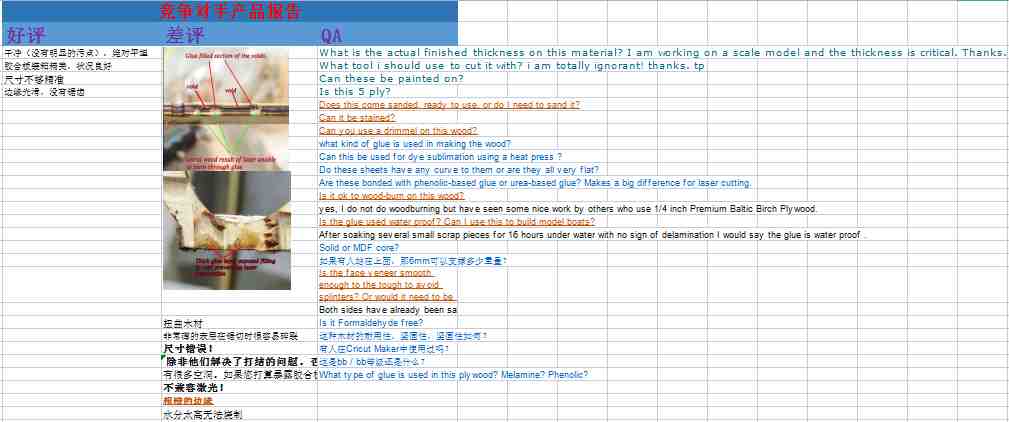 竞争对手产品报告
好评 差评 QA
干净（没有明显的污点），绝对平坦
胶合板缓和精美，状况良好
尺寸不够精准
边缘光滑，没有锯齿
Glue filled section of the voids.
void
void
burnt wood result of laser unable
to burn through glue
Thick glue
扭曲木材
非常薄的表层在锯切时很容易碎裂
尺寸错误！
除非他们解决了打结的问题，否
有很多空洞，如果您打算暴露胶合板
不兼容激光！
粗糙的边缘
水分太高无法烧制
What is the actual finished thickness on this material? I am working on a scale model and the thickness is critical. Thanks.
What tool i should use to cut it with? i am totally ignorant! thanks. tp
Can these be painted on?
Is this 5 ply?
Does this come sanded, ready to use, or do I need to sand it?
Can it be stained?
Can you use a drimmel on this wood?
what kind of glue is used in making the wood?
Can this be used for dye sublimation using a heat press ?
Do these sheets have any curve to them or are they all very flat?
Are these bonded with phenolic-based glue or urea-based glue? Makes a big difference for laser cutting.
Is it ok to wood-burn on this wood?
yes, I do not do woodburning but have seen some nice work by others who use 1/4 inch Premium Baltic Birch Plywood.
Is the glue used water proof? Can I use this to build model boats?
After soaking several small scrap pieces for 16 hours under water with no sign of delamination I would say the glue is water proof .
Solid or MDF core?
如果有人站在上面，那6mm可以支撑多少重量？
Is the face veneer smooth
enough to the tough to avoid
splinters? Or would it need to be
Both sides have already been sa
Is it Formaldehyde free?
这种木材的耐用性，坚固性，坚固性如何？
有人在Cricut Maker中使用过吗？
这是bb / bb等级还是什么？
What type of glue is used in this plywood? Melamine? Phenolic?